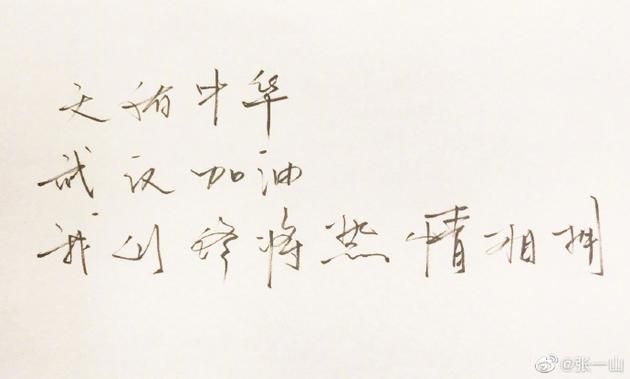 天佑中华
武汉加油
我们终将热情相拥
@张一山